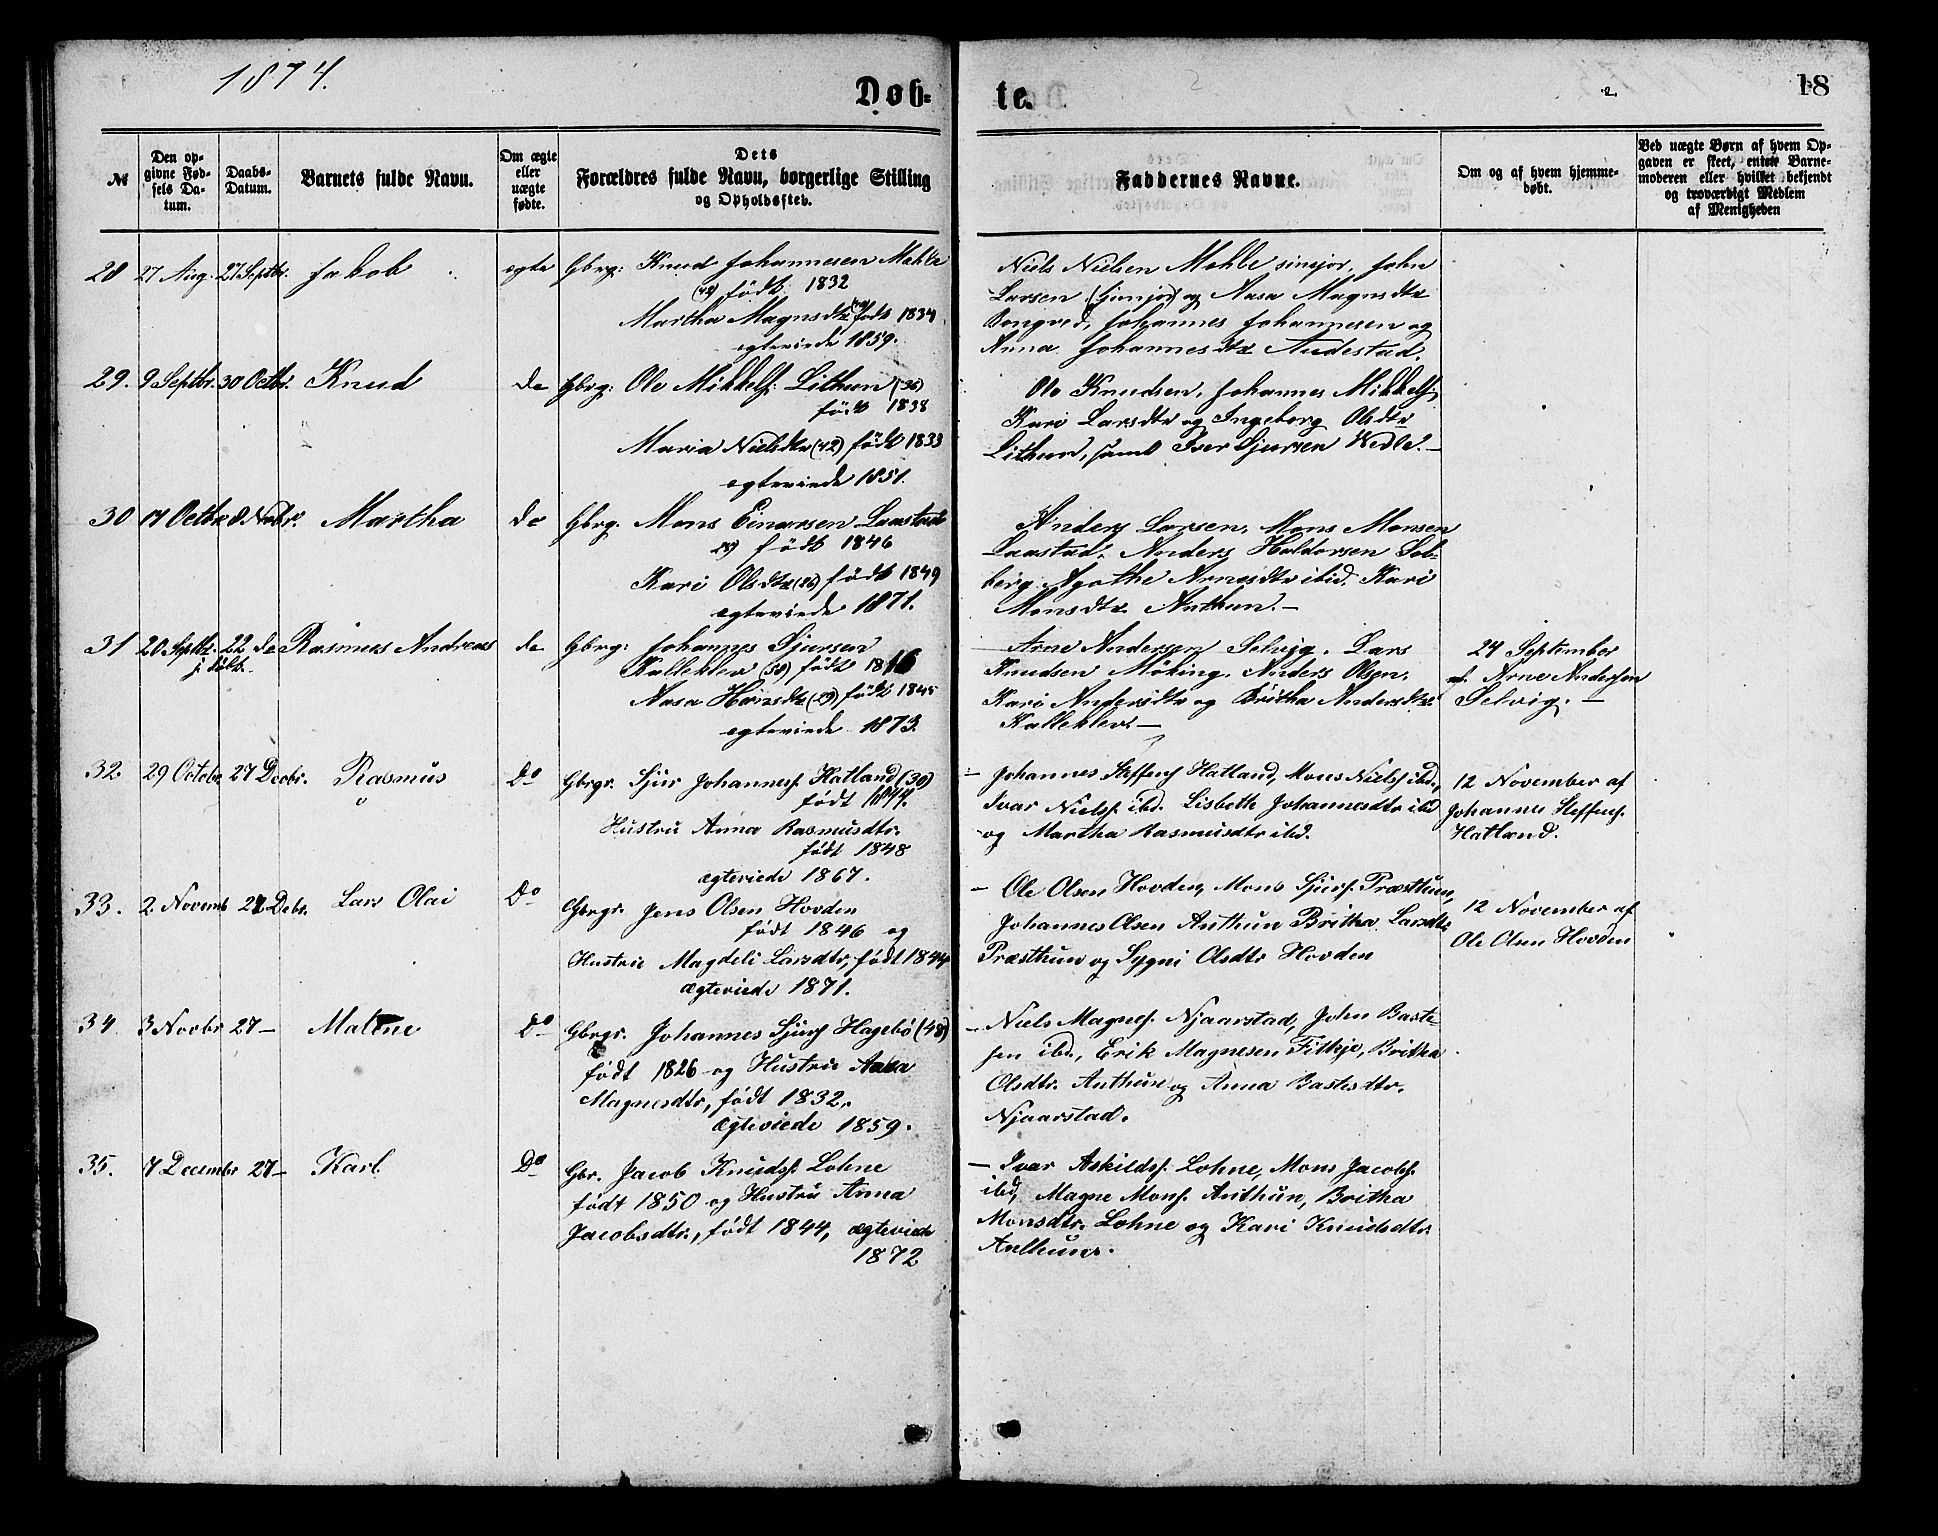 1874.
Døb-
te.
18
№
Den op-
givne Fød-
sels Da-
tum.
Daabs-
Datum.
Barnets fulde Navn.
Om ægte
eller
uægte
fødte.
Dets
Forældres fulde Navn, borgerlige Stilling
og Opholdssted.
Faddernes Navne.
Om og af hvem hjemme-
døbt.
Ved uægte Børn af hvem Op-
gaven er skeet, enten Barne-
moderen eller hvilket bekjendt
og troværdigt Medlem
af Menigheden
28 27 Aug. 27 Septbr. Jakob ægte Gbrg: Knud Johannesen Mehle
(42) født 1832
Martha Magnsdtr født 1834
egteviede 1859.
Niels Nielsen Mehle sinejor, John
Larsen (junjor) og Aasa Magnsdtr
Johannes Johannesen og
Anna Johannesdtr Audestad.
29. 9 Septbr. 30 Octbr. Knud do Gbrg: Ole Mikkels. Lithun (36)
født 1838
Maria Nielsdtr (42) født 1833
egteviede 1851.
Ole Knudsen, Johannes Mikkels,
Kari Larsdtr og Ingeborg Olsdtr
Lithun, samt Iver Sjursen Wedle. —
30 17 Octbr 8 Novbr. Martha do Gbrg. Mons Einarsen Laastad
(28) født 1846
Kari Olsdtr (26) født 1849
egteviede 1871.
Anders Larsen, Mons Monsen
Laastad, Anders Haldorsen Sol-
berg. Agothe Arnesdtr ibid. Kari
Monsdtr Anthun. —
31 20 Septbr. 22 do Rasmus Andreas do Gbrg: Johannes Sjursen
Kalleklev (58) født 1816
Aasa Hansdtr (29) født 1845
egteviede 1873.
Arne Andersen Selvig. Lars
Knudsen Møking. Anders Olsen,
Kari Andersdtr og Britha Andersdtr
Kalleklev. —
24 September
af Arne Andersen
Selvig. —
32. 29 Octobr 27 Decbr. Rasmus Do Gbrgr. Sjur Johannes. Hatland (30)
født 1844.
Hustru Anna Rasmusdtr.
født 1848
ægteviede 1867.
— Johannes Steffens. Hatland, Mons Niels. ibd,
Ivar Niels. ibd. Lisbeth Johannesdtr ibd
og Martha Rasmusdtr ibd.
12 November af
Johannes Steffens.
Hatland.
33. 2. Novemb 27 Debr. Lars Olai Do Gbrgr. Jens Olsen Hovden
født 1846 og
Hustru Magdeli Larsdtr, født 1844
ægteviede 1871.
— Ole Olsen Hovden, Mons Sjurs. Præsthun,
Johannes Olsen Anthun Britha Larsdtr
Præsthun og Sygni Olsdtr Hovden
12 November af
Ole Olsen Hovden
34. 3 Novbr 27 — Maltne Do Gbrgr. Johannes Sjurs Hagebø (48)
født 1826 og Hustru Aasa
Magnesdtr, født 1832,
ægteviede 1859.
— Niels Magnes. Njaarstad, John Baste-
sen ibd., Erik Magnesen Fitkje, Britha
Olsdtr. Anthun og Anna Bastesdtr.
Njaarstad.
35. 7 Decembr 27 — Karl Do Gbr. Jacob Knuds. Lohne
født 1850 og Hustru Anna
Jacobsdtr., født 1844, ægteviede
1872
— Ivar Askilds. Lohne, Mons Jacobs.
ibd, Magne Mons. Anthun, Britha
Monsdtr. Lohne og Kari Knudsdtr.
Anthun.